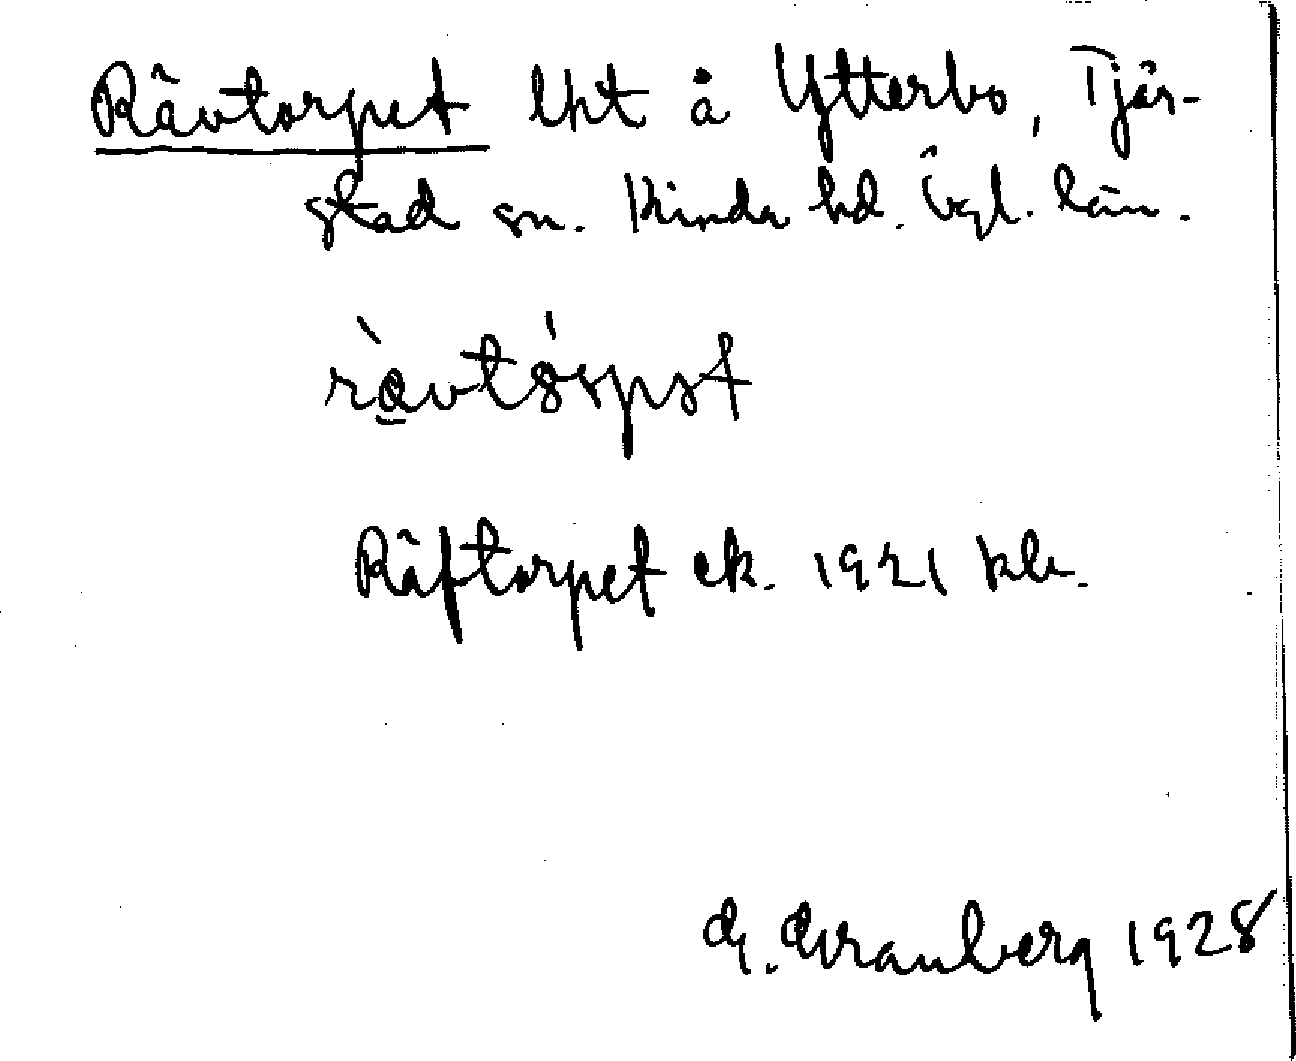 Rävtorpet lht å Ytterbo, Tjär-
stad sn. Kinda hd. Ögl. län.
Räftorpet ek. 1921 kb.
G. Granberg 1928